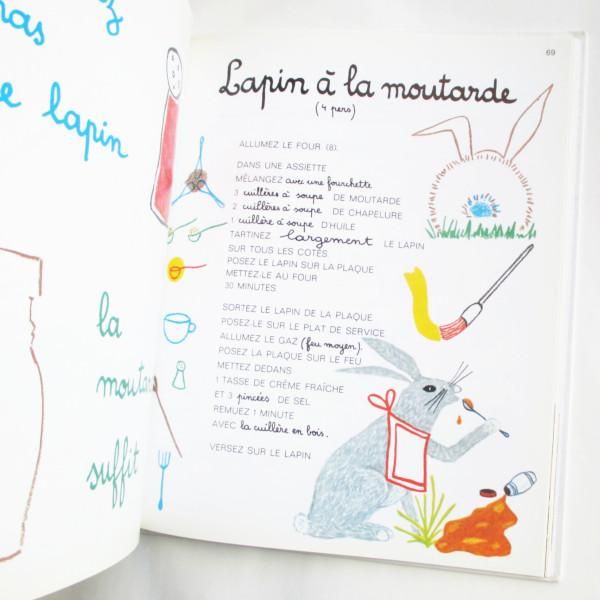 ras
e lapin
la
suffit
69
Lapin à la moutarde
(4 pers)
ALLUMEZ LE FOUR (8).
DANS UNE ASSIETTE
MÉLANGEZ avec une fourchette
3 cuillères à soupe DE MOUTARDE
2 cuillères à soupe DE CHAPELURE
1 cuillère à soupe D'HUILE
TARTINEZ largement LE LAPIN
SUR TOUS LES COTÉS
POSEZ LE LAPIN SUR LA PLAQUE
METTEZ-LE AU FOUR
30 MINUTES
SORTEZ LE LAPIN DE LA PLAQUE
POSEZ-LE SUR LE PLAT DE SERVICE
ALLUMEZ LE GAZ (feu moyen).
POSEZ LA PLAQUE SUR LE FEU
METTEZ DEDANS
1 TASSE DE CRÈME FRAÎCHE
ET 3 pincées DE SEL
REMUEZ 1 MINUTE
AVEC la cuillère en bois.
VERSEZ SUR LE LAPIN